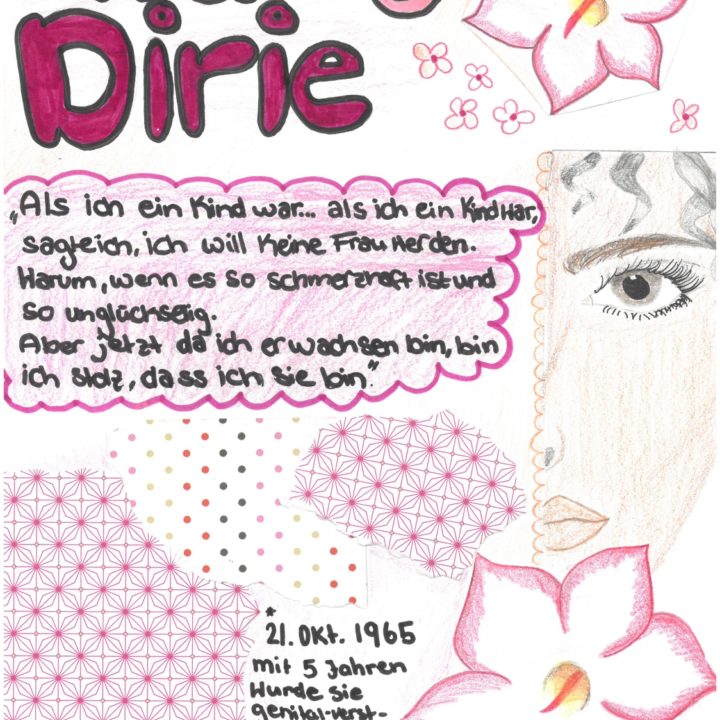 Dirie
„Als ich ein Kind war... als ich ein Kind war,
sagte ich, ich will keine Frau werden.
Warum, wenn es so schmerzhaft ist und
so unglückselig.
Aber jetzt da ich erwachsen bin, bin
ich stolz, dass ich sie bin."
*
21. Okt. 1965
mit 5 Jahren
wurde sie
genital-verst-